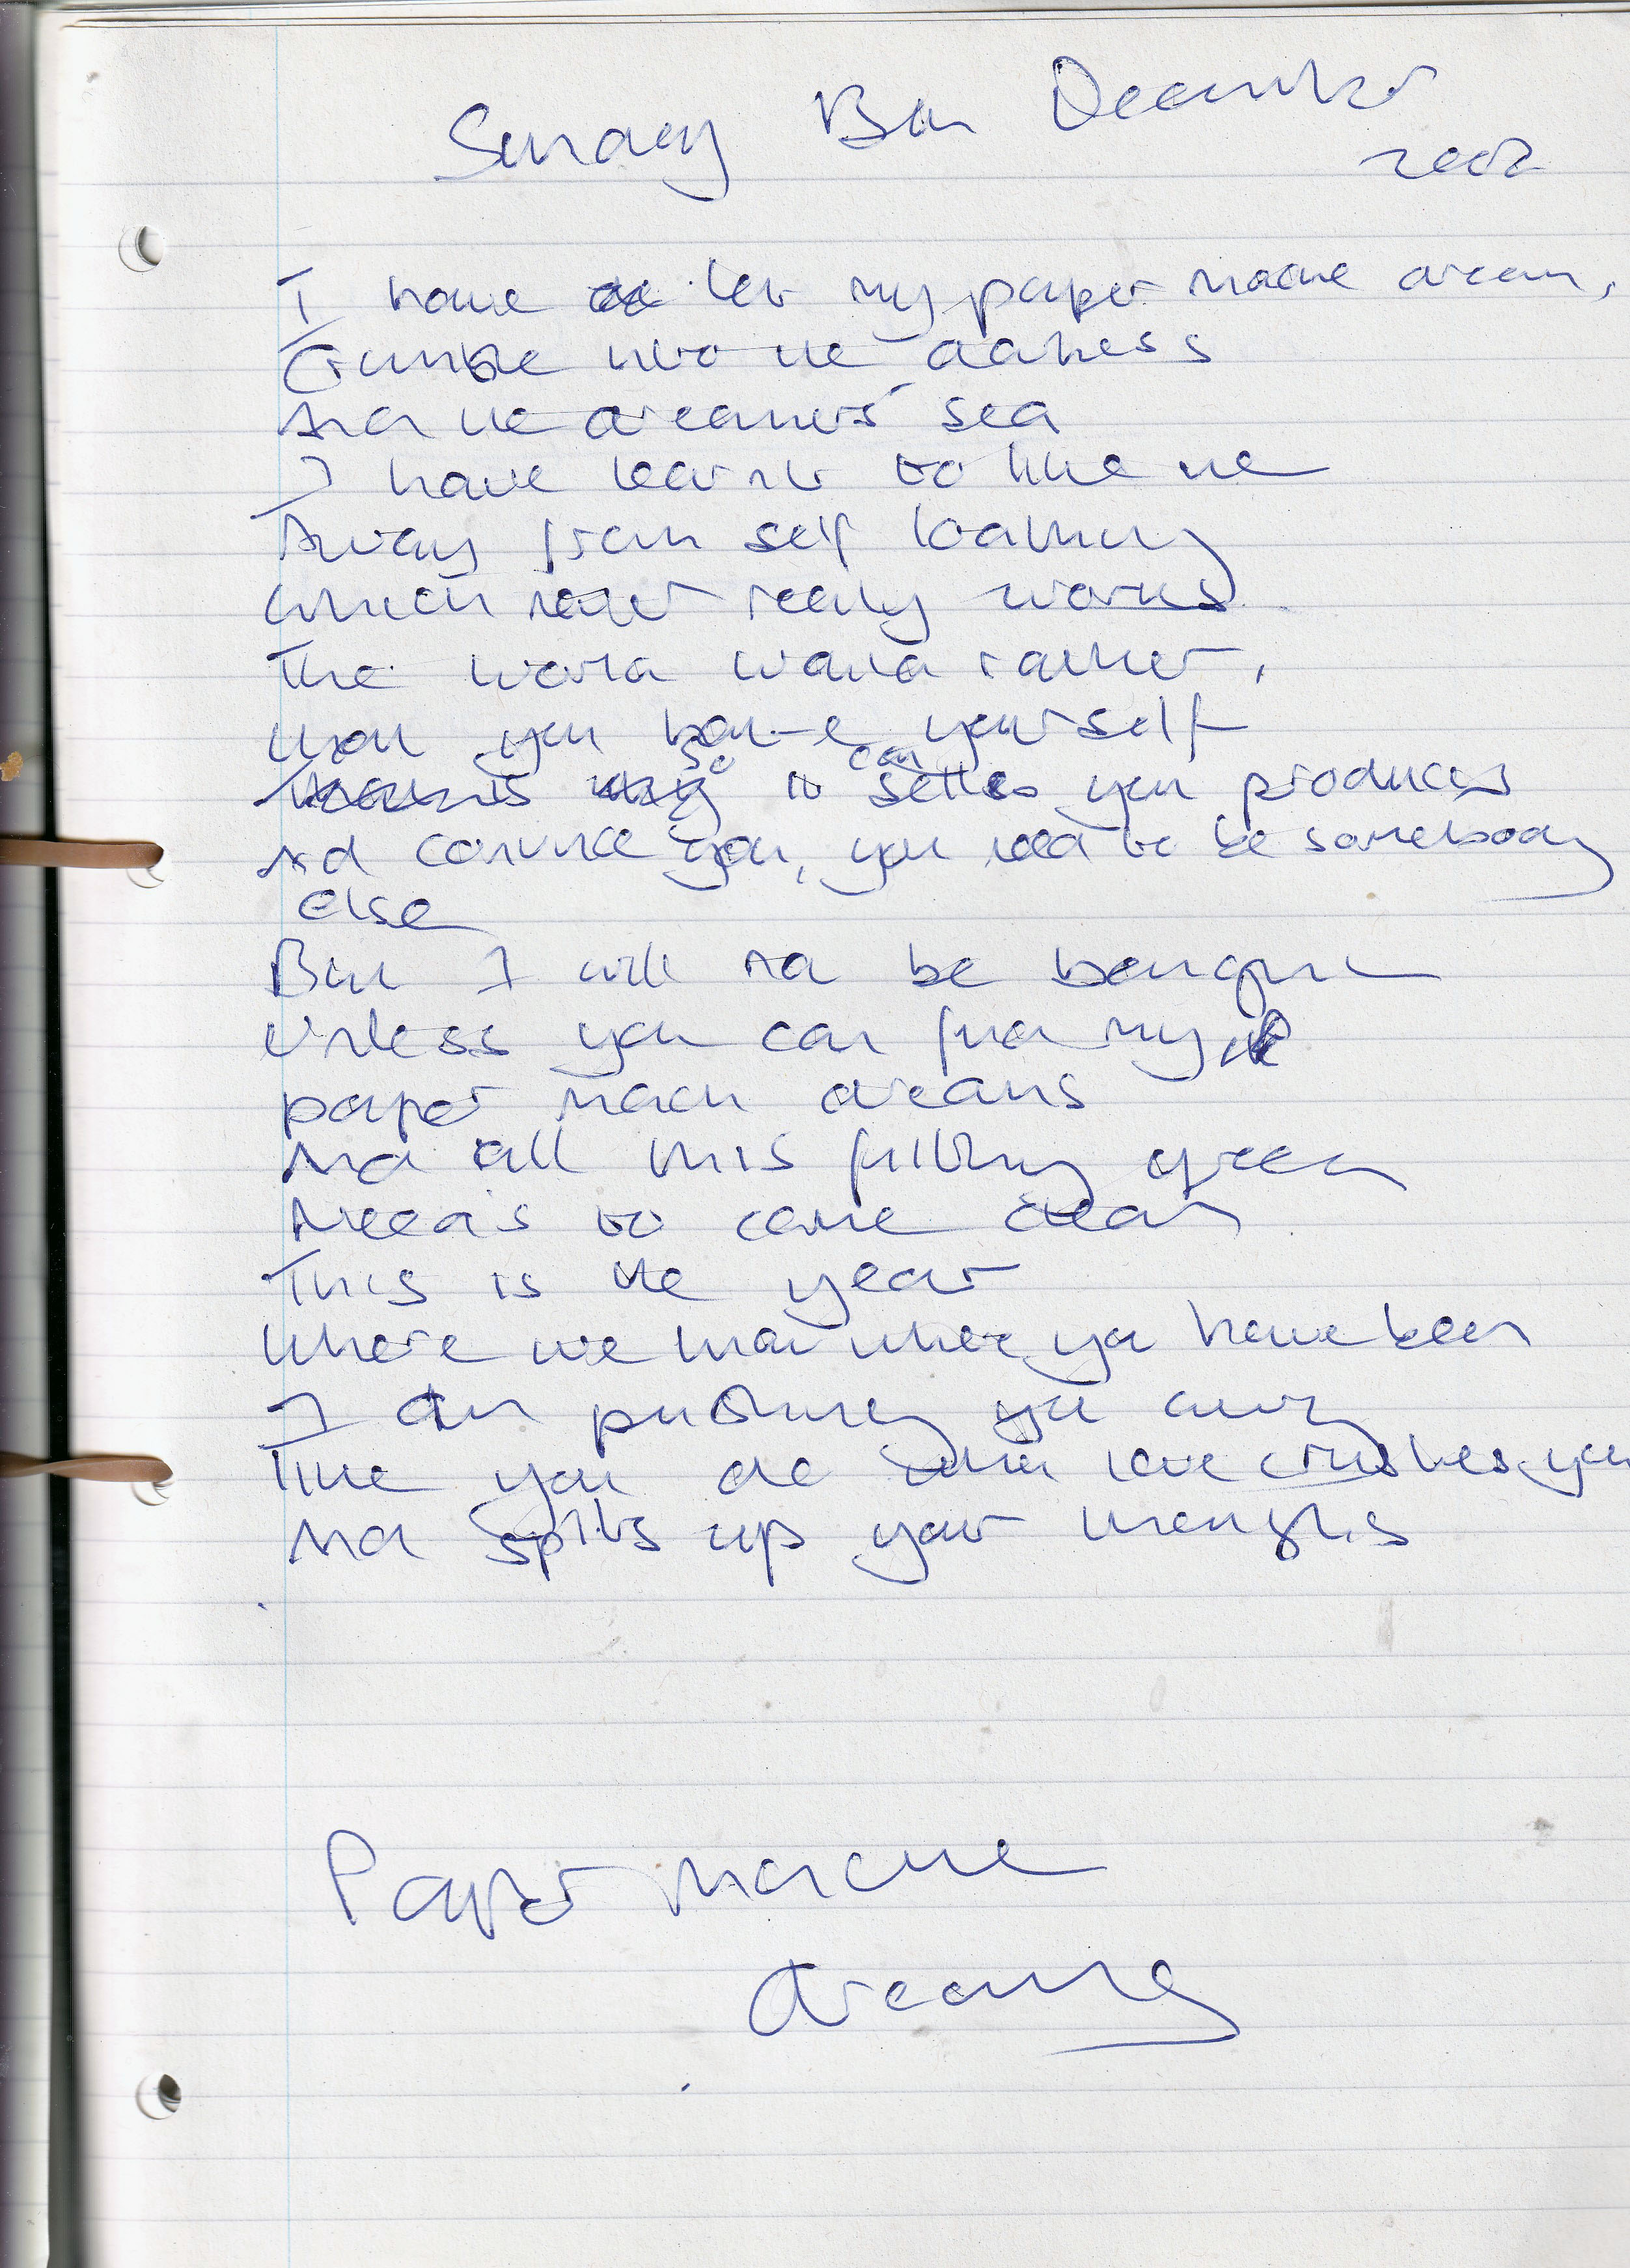 Sunday 8th December
2002
I have let my paper mache dream,
Crumble into the darkness
And the dreamers' sea
I have learnt to like me
Away from self loathing
Which never really works
The world would rather,
that you hate yourself
so it can sell you produces
And convince you, you need to be somebody
else
But I will not be bought
Unless you can find my
paper mach dreams
And all this filthy green
Needs to come clean
This is the year
Where we know where you have been
I am pushing you away
like you do when love crushes you
And splits up your thoughts
Paper mache
dreams